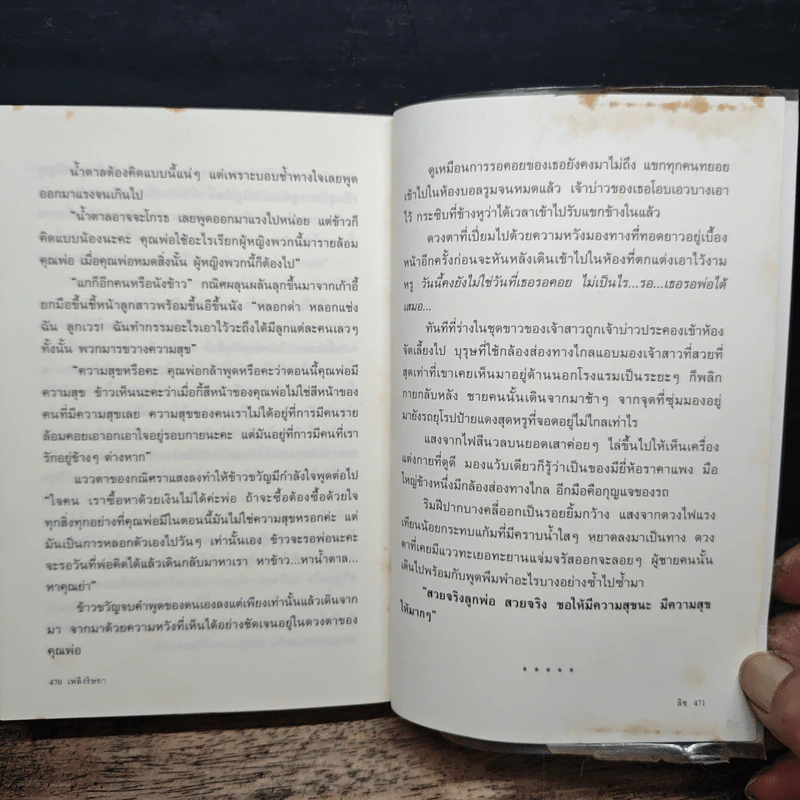 น้ำตาลต้องคิดแบบนี้แน่ๆ แต่เพราะบอบช้ำทางใจเลยพูด
ออกมาแรงจนเกินไป
“น้ำตาลอาจจะโกรธ เลยพูดออกมาแรงไปหน่อย แต่ข้าวก็
คิดแบบน้องนะคะ คุณพ่อใช้อะไรเรียกผู้หญิงพวกนี้มารายล้อม
คุณพ่อ เมื่อคุณพ่อหมดสิ่งนั้น ผู้หญิงพวกนี้ก็ต้องไป”
“แกก็อีกคนหรือนังข้าว” กณิศผลุนผลันลุกขึ้นมาจากเก้าอี้
ยกมือขึ้นชี้หน้าลูกสาวพร้อมขึ้นอีขึ้นนัง “หลอกด่า หลอกแช่ง
ฉัน ลูกเวร! ฉันทำกรรมอะไรเอาไว้วะถึงได้มีลูกแต่ละคนเลวๆ
ทั้งนั้น พวกมารขวางความสุข”
“ความสุขหรือคะ คุณพ่อกล้าพูดหรือคะว่าตอนนี้คุณพ่อมี
ความสุข ข้าวเห็นนะคะว่าเมื่อกี้สีหน้าของคุณพ่อไม่ใช่สีหน้าของ
คนที่มีความสุขเลย ความสุขของคนเราไม่ได้อยู่ที่การมีคนราย
ล้อมคอยเอาอกเอาใจอยู่รอบกายนะคะ แต่มันอยู่ที่การมีคนที่เรา
รักอยู่ข้างๆ ต่างหาก”
แววตาของกณิศราแสงลงทำให้ข้าวขวัญมีกำลังใจพูดต่อไป
“ใจคน เราซื้อหาด้วยเงินไม่ได้ค่ะพ่อ ถ้าจะซื้อต้องซื้อด้วยใจ
ทุกสิ่งทุกอย่างที่คุณพ่อมีในตอนนี้มันไม่ใช่ความสุขหรอกค่ะ แต่
มันเป็นการหลอกตัวเองไปวันๆ เท่านั้นเอง ข้าวจะรอพ่อนะคะ
จะรอวันที่พ่อคิดได้แล้วเดินกลับมาหาเรา หาข้าว...หาน้ำตาล...
หาคุณย่า”
ข้าวขวัญจบคำพูดของตนเองลงแต่เพียงเท่านั้นแล้วเดินจาก
มา จากมาด้วยความหวังที่เห็นได้อย่างชัดเจนอยู่ในดวงตาของ
คุณพ่อ
470 เพลิงริษยา
ดูเหมือนการรอคอยของเธอยังคงมาไม่ถึง แขกทุกคนทยอย
เข้าไปในห้องบอลรูมจนหมดแล้ว เจ้าบ่าวของเธอโอบเอวบางเอา
ไว้ กระซิบที่ข้างหูว่าได้เวลาเข้าไปรับแขกข้างในแล้ว
ดวงตาที่เปี่ยมไปด้วยความหวังมองทางที่ทอดยาวอยู่เบื้อง
หน้าอีกครั้งก่อนจะหันหลังเดินเข้าไปในห้องที่ตกแต่งเอาไว้งาม
หรู วันนี้คงยังไม่ใช่วันที่เธอรอคอย ไม่เป็นไร...รอ...เธอรอพ่อได้
เสมอ...
ทันทีที่ร่างในชุดขาวของเจ้าสาวถูกเจ้าบ่าวประคองเข้าห้อง
จัดเลี้ยงไป บุรุษที่ใช้กล้องส่องทางไกลแอบมองเจ้าสาวที่สวยที่
สุดเท่าที่เขาเคยเห็นมาอยู่ด้านนอกโรงแรมเป็นระยะๆ ก็พลิก
กายกลับหลัง ชายคนนั้นเดินจากมาช้าๆ จากจุดที่ซุ่มมองอยู่
มายังรถยุโรปป้ายแดงสุดหรูที่จอดอยู่ไม่ไกลเท่าไร
แสงจากไฟสีนวลบนยอดเสาค่อยๆ ไล่ขึ้นไปให้เห็นเครื่อง
แต่งกายที่ดูดี มองแว้บเดียวก็รู้ว่าเป็นของมียี่ห้อราคาแพง มือ
ใหญ่ข้างหนึ่งมีกล้องส่องทางไกล อีกมือคือกุญแจของรถ
ริมฝีปากบางคลี่ออกเป็นรอยยิ้มกว้าง แสงจากดวงไฟแรง
เทียนน้อยกระทบแก้มที่มีคราบน้ำใสๆ หยาดลงมาเป็นทาง ดวง
ตาที่เคยมีแววทะเยอทะยานแจ่มจรัสออกจะลอยๆ ผู้ชายคนนั้น
เดินไปพร้อมกับพูดพึมพำอะไรบางอย่างซ้ำไปซ้ำมา
“สวยจริงลูกพ่อ สวยจริง ขอให้มีความสุขนะ มีความสุข
ให้มากๆ”
* * * * *
ลิซ 471